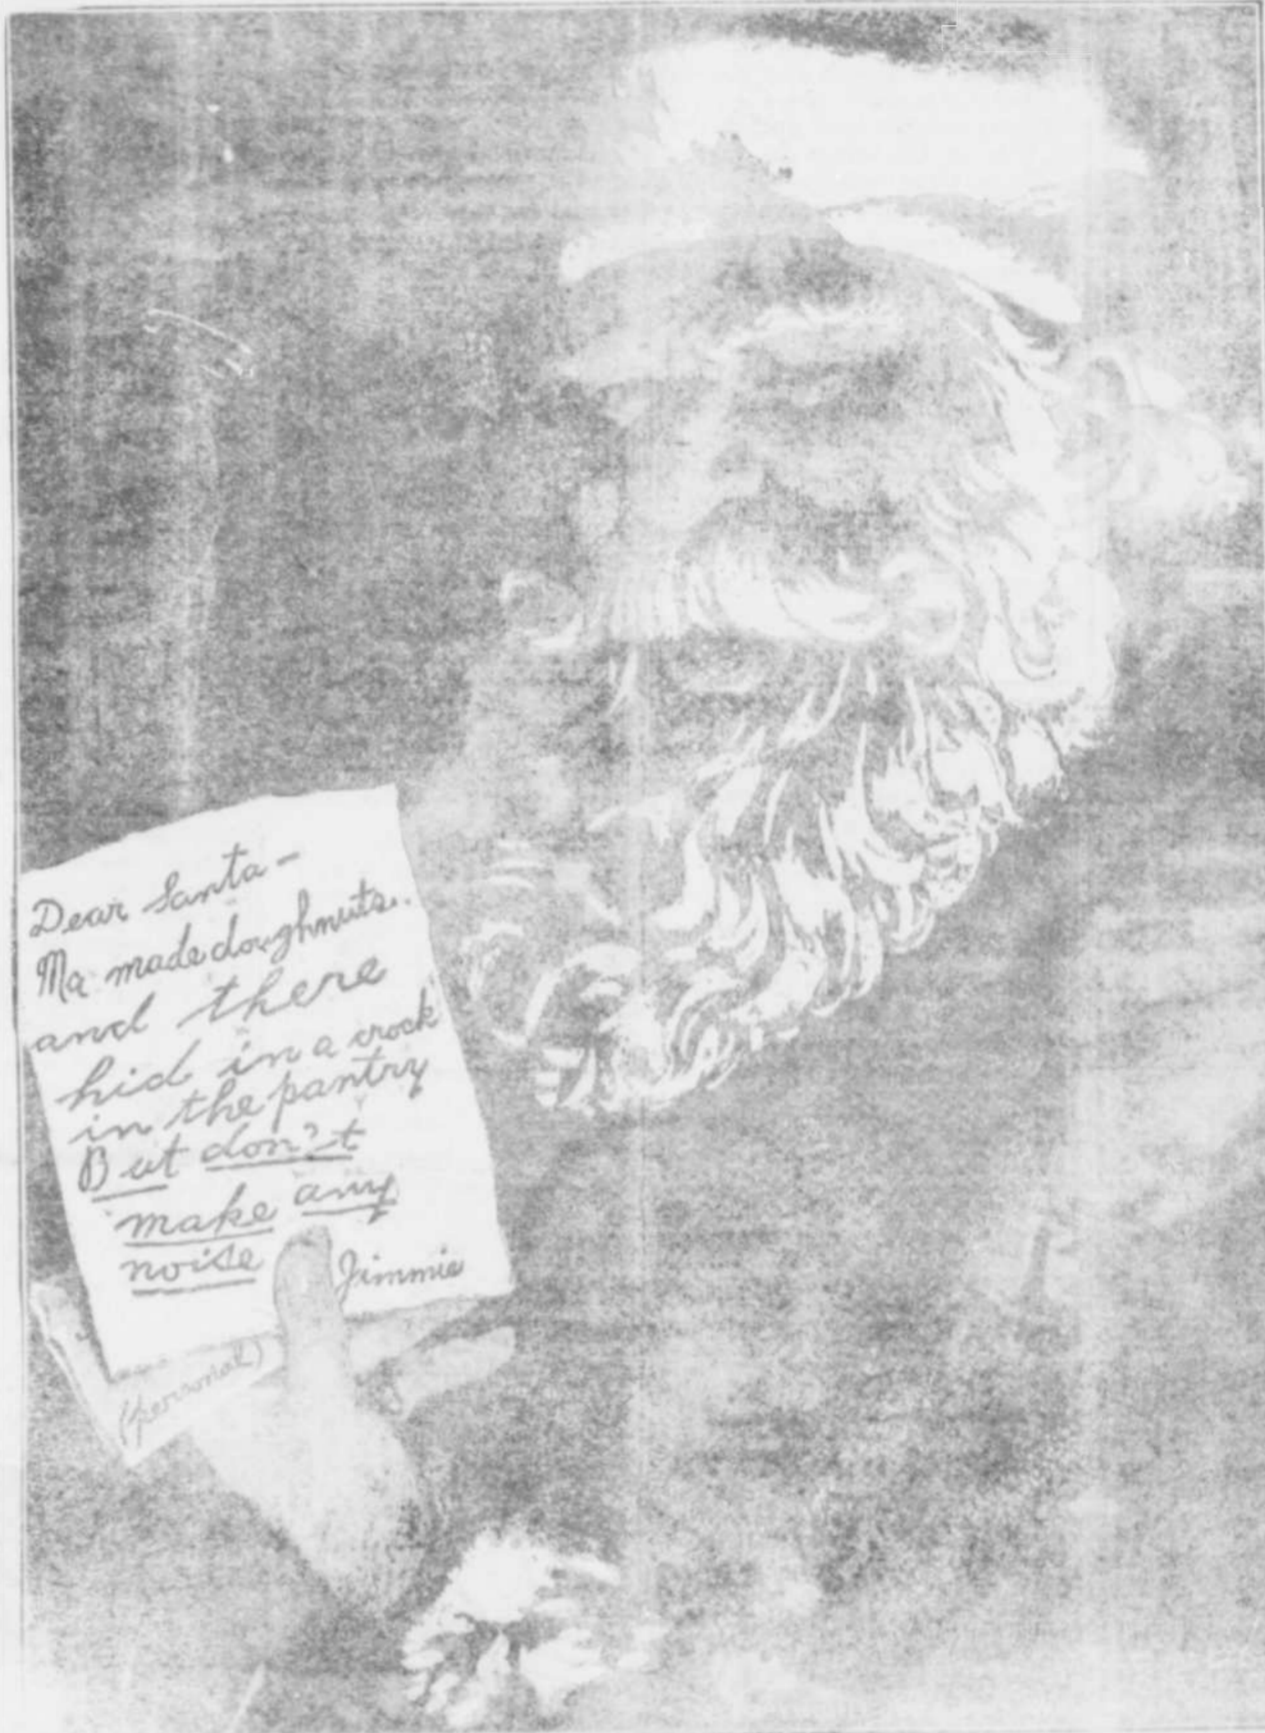 Dear Santa -
Ma made doughnuts.
and there
hid in a crock
in the pantry
But don't
make any
noise
Jimmie
(personal)